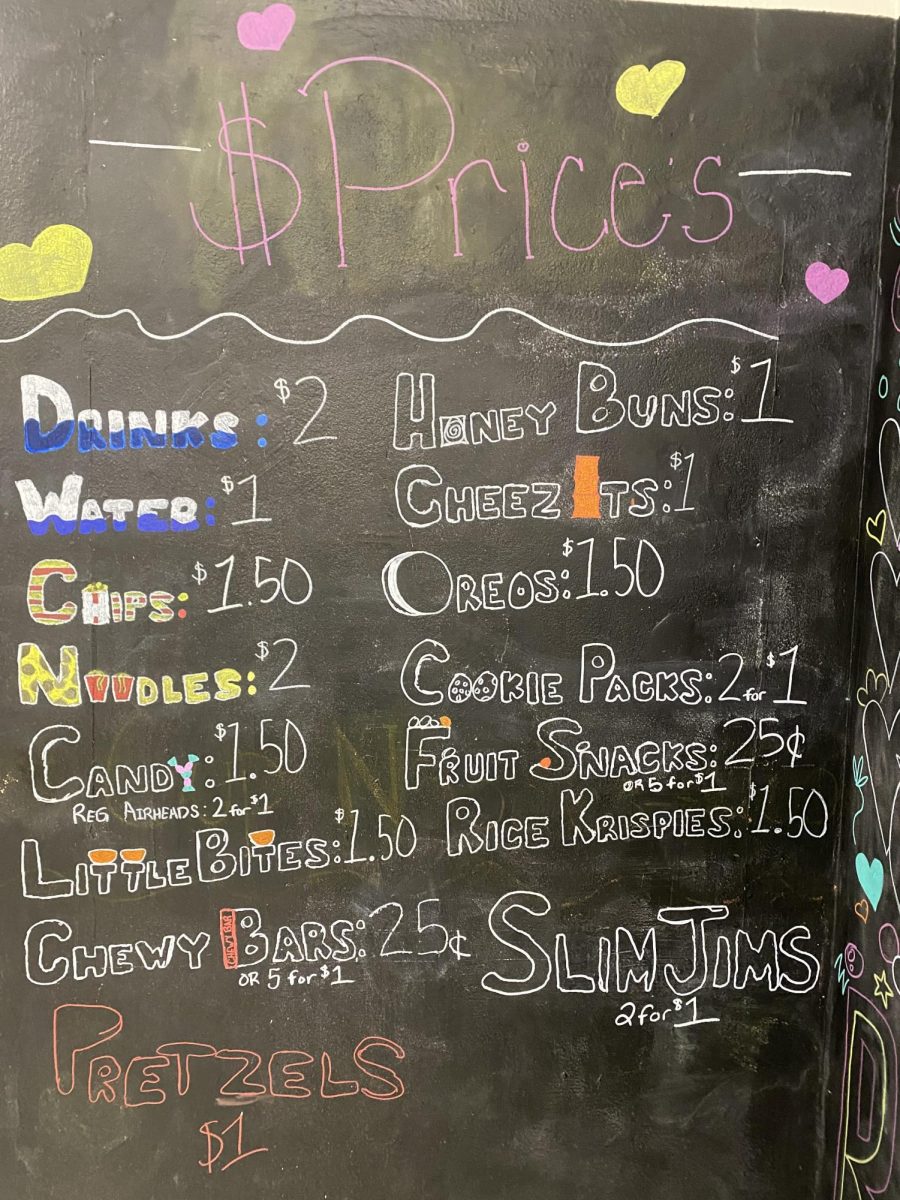 $Price's
DRINKS: $2
WATER: $1
CHIPS: $1.50
NOODLES: $2
CANDY: $1.50
REG AIRHEADS: 2 for $1
LITTLE BITES: $1.50
CHEWY BARS: 25¢
CHEWY BAR
OR 5 for $1
PRETZELS
$1
HONEY BUNS: $1
CHEEZ ITS: $1
OREOS: $1.50
COOKIE PACKS: 2 for $1
FRUIT SNACKS: 25¢
OR 5 for $1
RICE KRISPIES: $1.50
SLIM JIMS
2 for $1